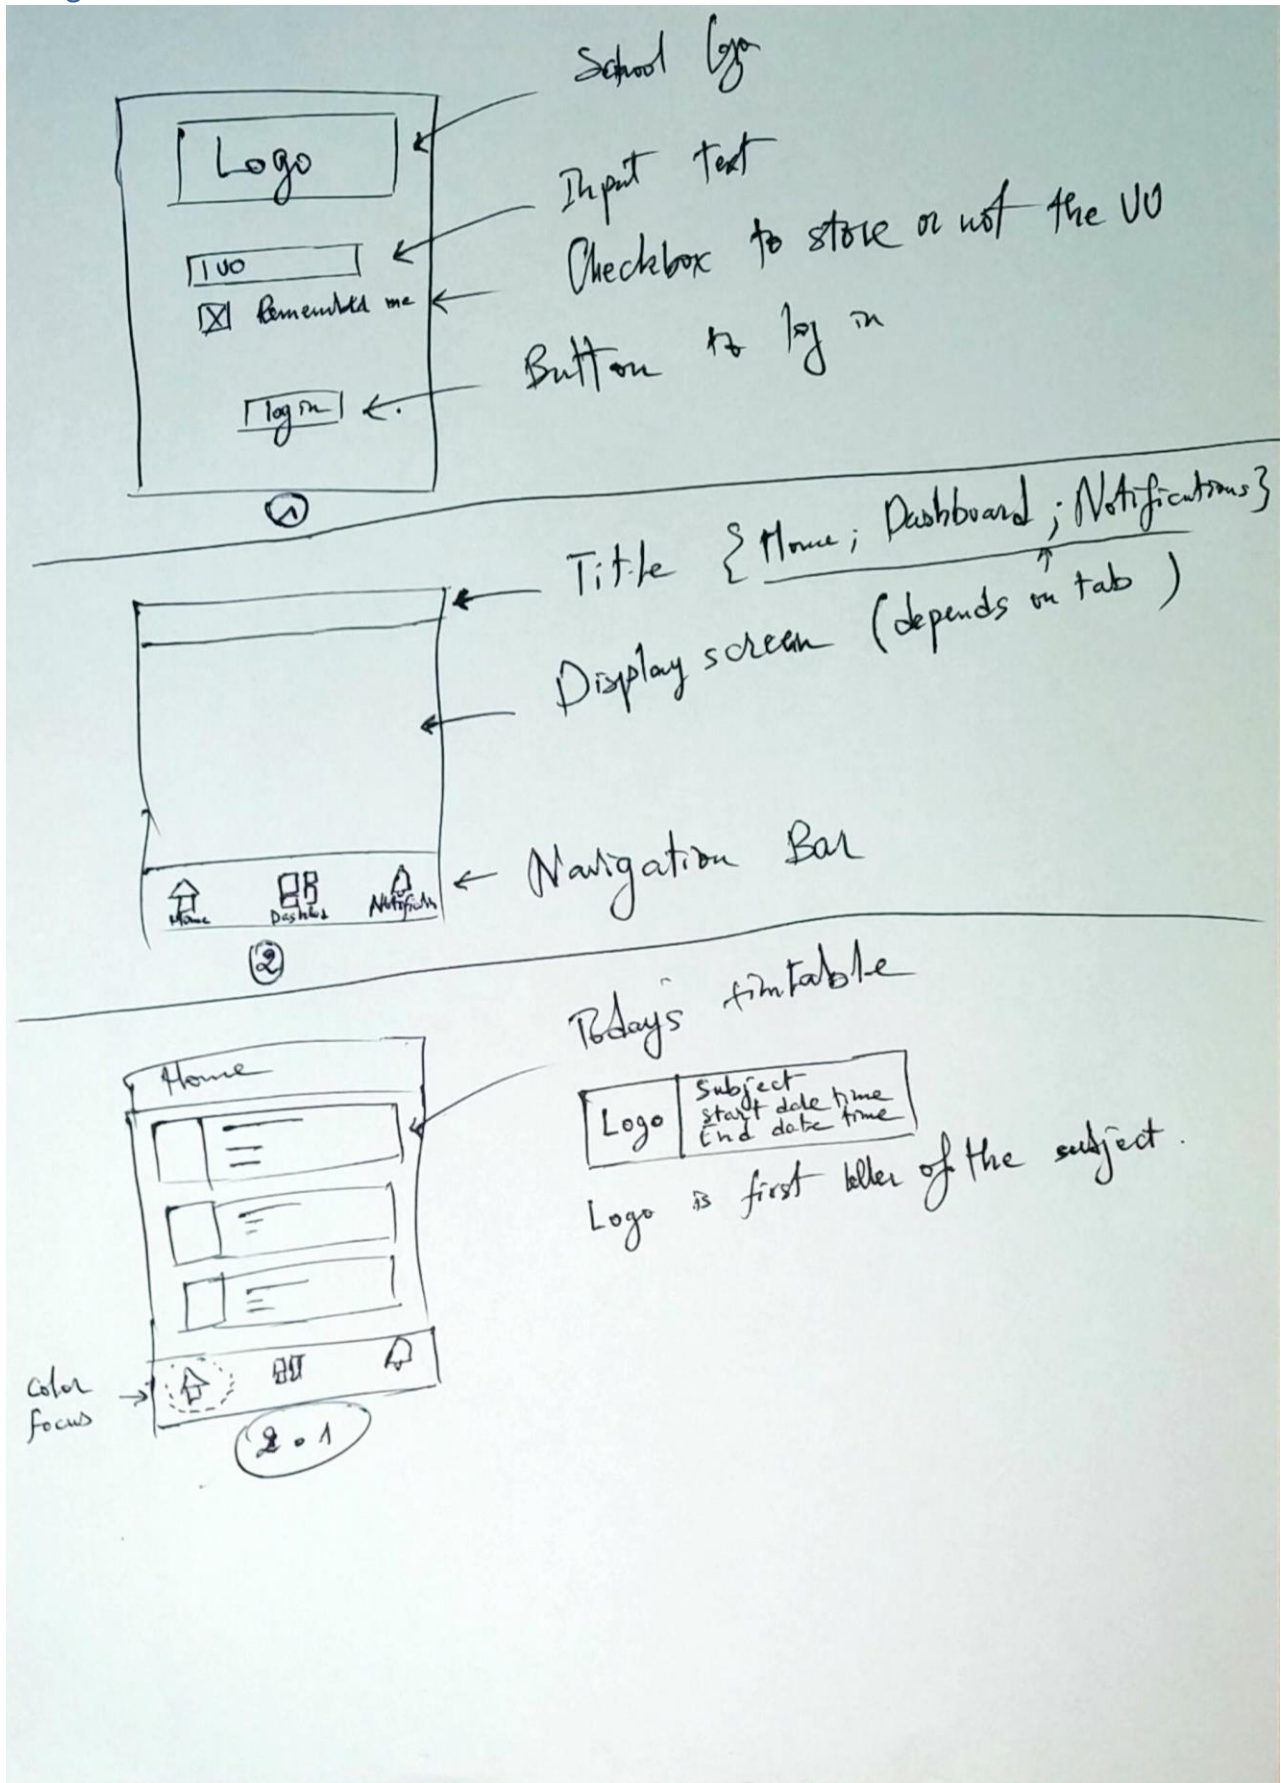 School logo
Logo
Input text
Checkbox to store or not the VU
Remember me
Button to log in
log in
1
Title { Home; Dashboard; Notifications}
Display screen (depends on tab)
Navigation Bar
Home
2
Today's timtable
Home
Logo
Subject
start date time
End date time
Logo is first letter of the subject.
Color
focus
2.1